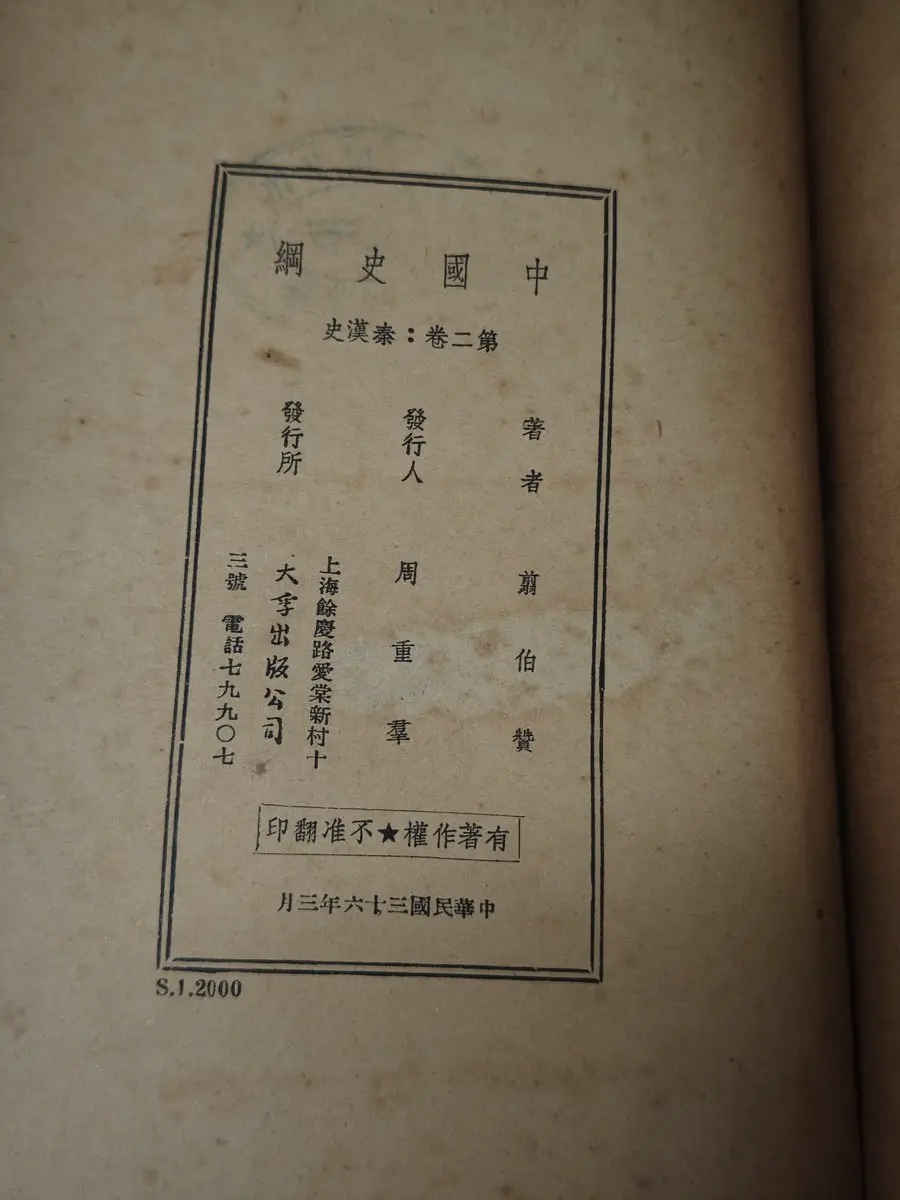 中國史綱
第二卷：秦漢史
著者 翦伯贊
發行人 周重羣
發行所 大孚出版公司
上海餘慶路愛棠新村十
三號 電話七九九〇七
有著作權★不准翻印
中華民國三十六年三月
S.1.2000